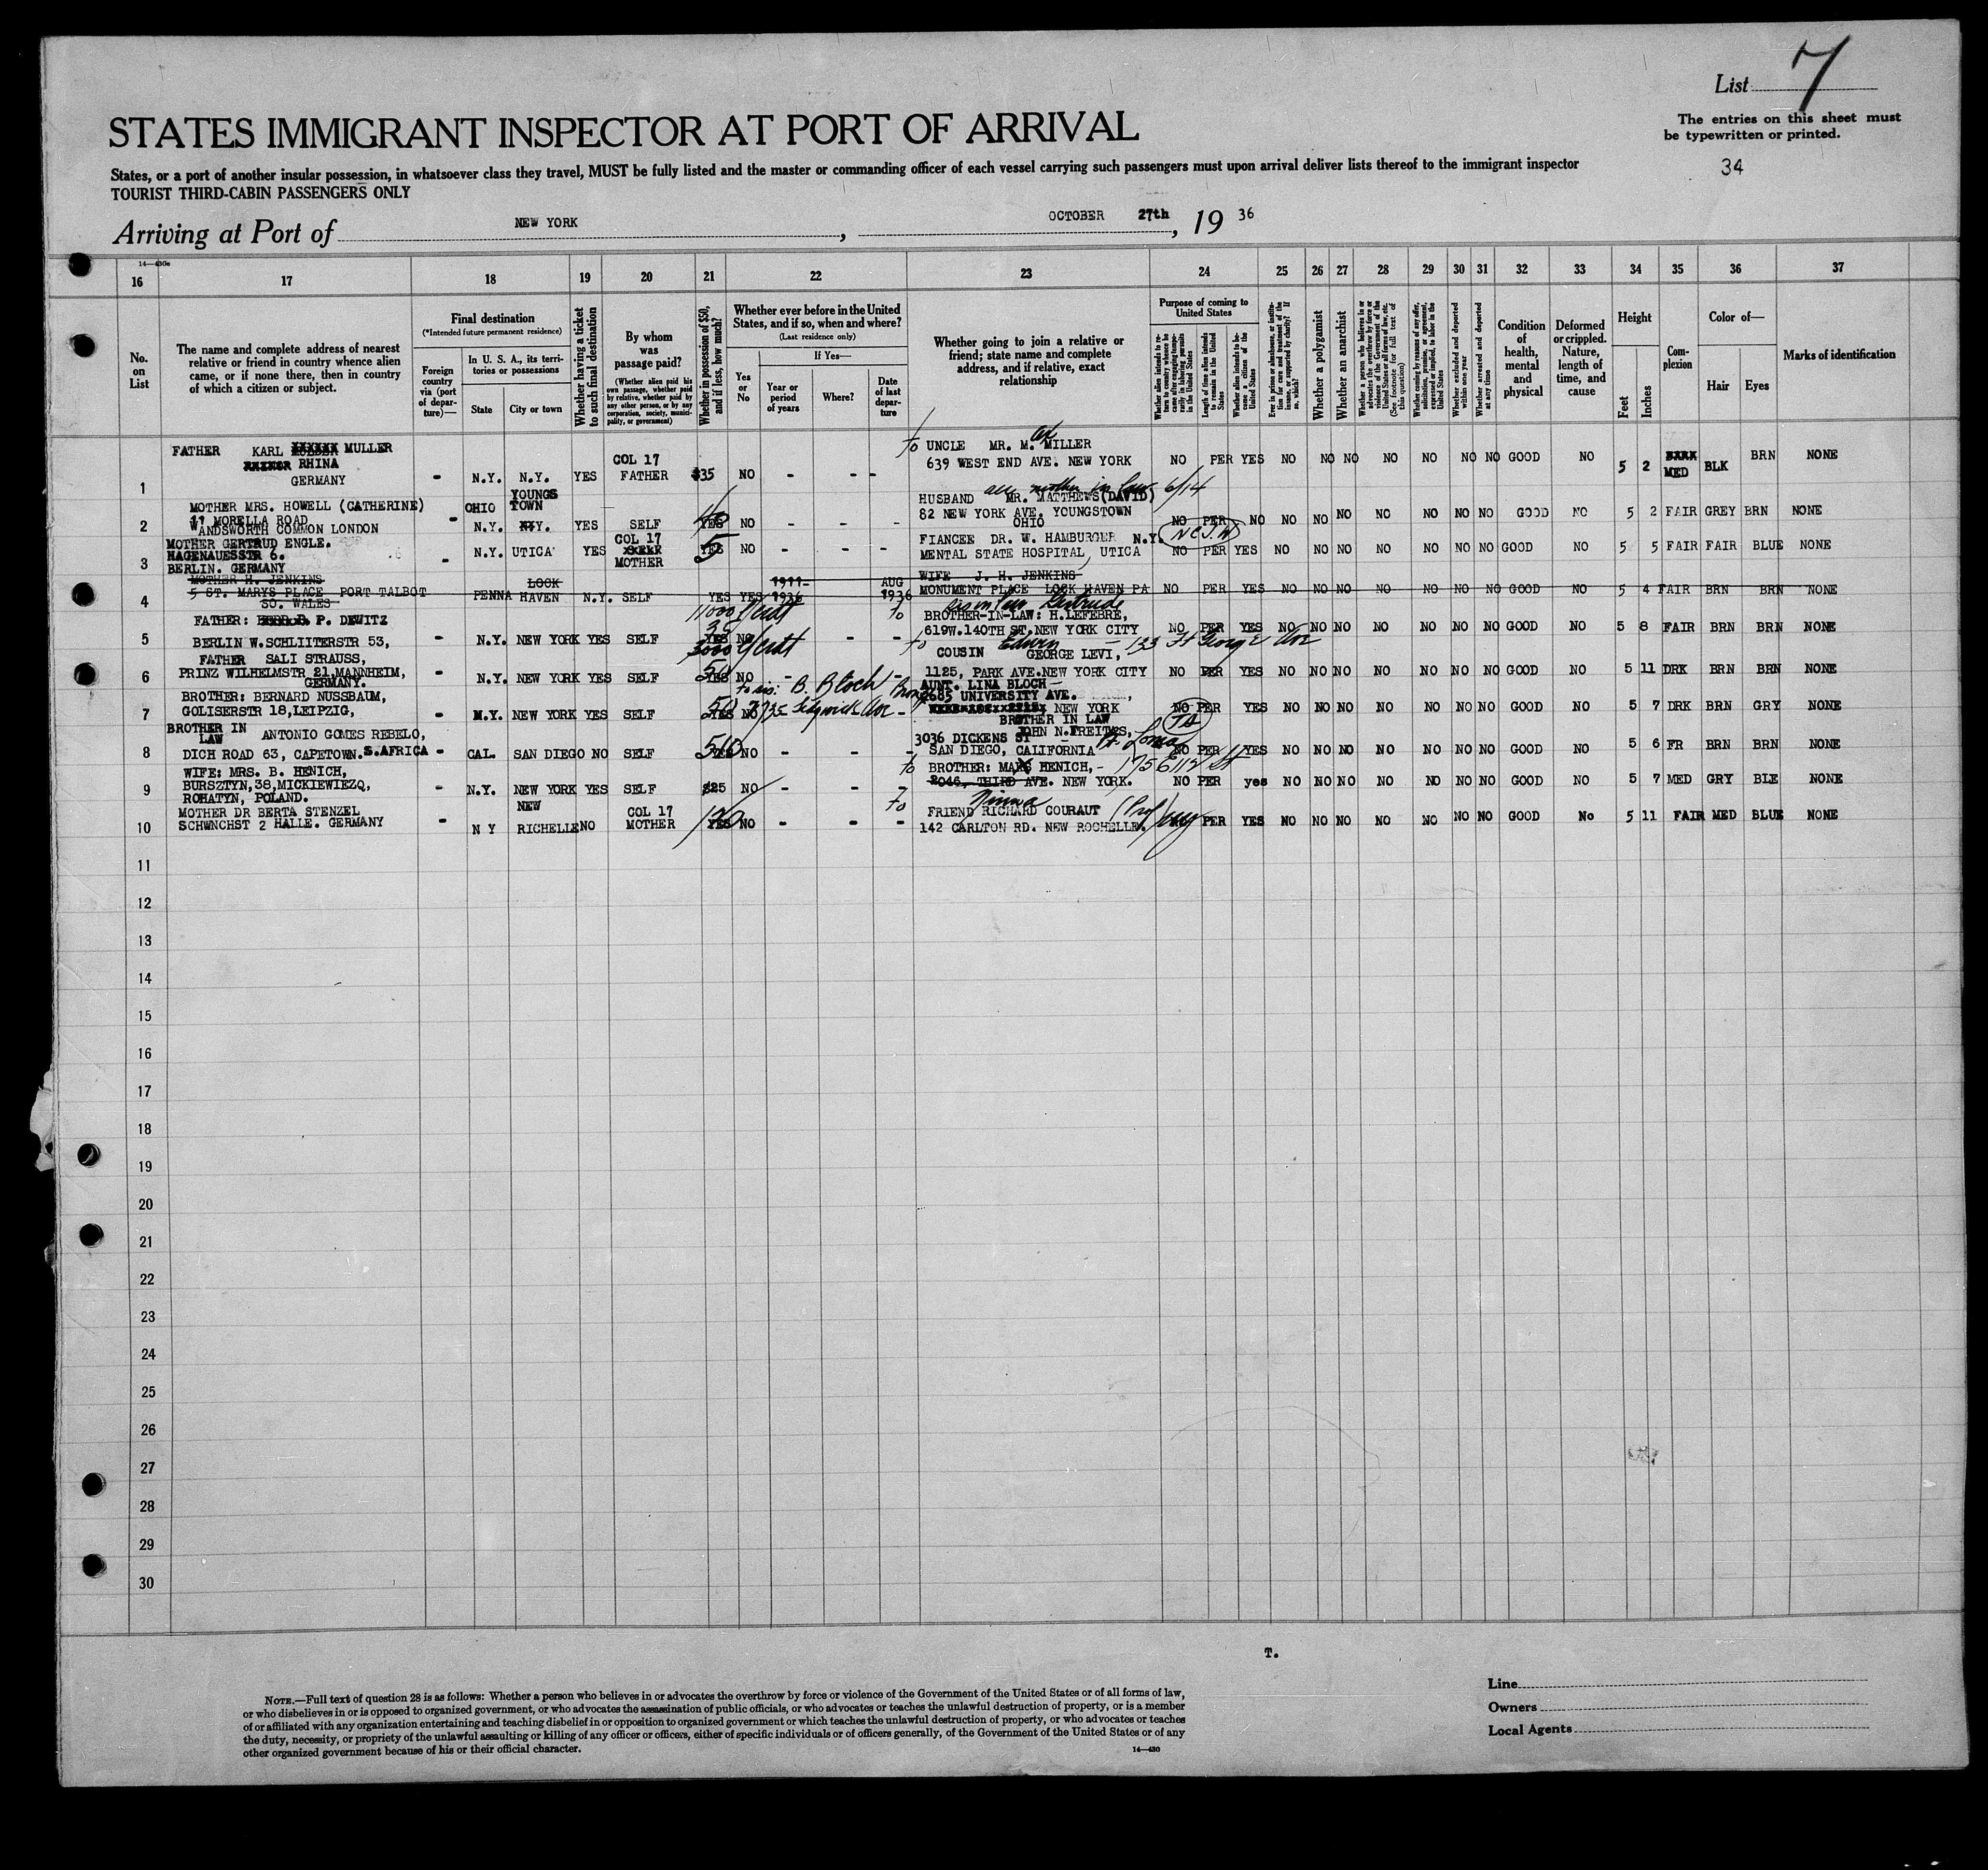 List 7
STATES IMMIGRANT INSPECTOR AT PORT OF ARRIVAL
The entries on this sheet must
be typewritten or printed.
States, or a port of another insular possession, in whatsoever class they travel, MUST be fully listed and the master or commanding officer of each vessel carrying such passengers must upon arrival deliver lists thereof to the immigrant inspector
34
TOURIST THIRD-CABIN PASSENGERS ONLY
Arriving at Port of NEW YORK , OCTOBER 27th , 19 36
14—430a
16 17 18 19 20 21 22 23 24 25 26 27 28 29 30 31 32 33 34 35 36 37
No. on List
The name and complete address of nearest
relative or friend in country whence alien
came, or if none there, then in country
of which a citizen or subject.
Final destination
(*Intended future permanent residence)
Foreign country via (port of departure)—
In U. S. A., its territories or possessions
State
City or town
Whether having a ticket to such final destination
By whom was passage paid?
(Whether alien paid his own passage, whether paid by relative, whether paid by any other person, or by any corporation, society, municipality, or government)
Whether in possession of $50, and if less, how much?
Whether ever before in the United
States, and if so, when and where?
(Last residence only)
Yes or No
If Yes—
Year or period of years
Where?
Date of last departure
Whether going to join a relative or
friend; state name and complete
address, and if relative, exact
relationship
Purpose of coming to United States
Whether alien intends to return to country whence he came after engaging temporarily in laboring pursuits in the United States
Length of time alien intends to remain in the United States
Whether alien intends to become a citizen of the United States
Ever in prison or almshouse, or institution for care and treatment of the insane, or supported by charity? If so, which?
Whether a polygamist
Whether an anarchist
Whether a person who believes in or advocates the overthrow by force or violence of the Government of the United States or all forms of law, etc. (See footnote for full text of this question)
Whether coming by reason of any offer, solicitation, promise, or agreement, expressed or implied, to labor in the United States
Whether excluded and deported within one year
Whether arrested and deported at any time
Condition of health, mental and physical
Deformed or crippled. Nature, length of time, and cause
Height
Feet
Inches
Complexion
Color of—
Hair
Eyes
Marks of identification
FATHER KARL MULLER
RHINA
GERMANY
1 - N.Y. N.Y. YES COL 17 FATHER $35 NO - - -
to UNCLE MR. M. MILLER
639 WEST END AVE. NEW YORK
NO PER YES NO NO NO NO NO NO NO GOOD NO 5 2 MED BLK BRN NONE
MOTHER MRS. HOWELL (CATHERINE)
11 MORELLA ROAD
WANDSWORTH COMMON LONDON
2 - OHIO YOUNGS TOWN N.Y. YES SELF YES NO - - -
HUSBAND MR. MATTHEWS (DAVID) 6/14
82 NEW YORK AVE. YOUNGSTOWN
OHIO
NO PER NO NO NO NO NO NO NO NO GOOD NO 5 2 FAIR GREY BRN NONE
MOTHER GERTRUD ENGLE.
HAGENAUESSTR 6.
BERLIN. GERMANY
3 - N.Y. UTICA YES COL 17 MOTHER YES 5 NO - - -
FIANCEE DR. W. HAMBURGUR N.Y.
MENTAL STATE HOSPITAL, UTICA
NO PER YES NO NO NO NO NO NO NO GOOD NO 5 5 FAIR FAIR BLUE NONE
MOTHER H. JENKINS
5 ST. MARYS PLACE PORT TALBOT
SO. WALES
4 PENNA LOCK HAVEN N.Y. SELF YES YES 1911- 1936 AUG 1936
WIFE J. H. JENKINS
MONUMENT PLACE LOCK HAVEN PA
NO PER YES NO NO NO NO NO NO NO GOOD NO 5 4 FAIR BRN BRN NONE
FATHER: P. DEWITZ
BERLIN W.SCHLIITERSTR 53,
5 - N.Y. NEW YORK YES SELF YES NO - -
to sis in law Gertrude
BROTHER-IN-LAW: H.LEFEBRE,
619W.140TH ST.NEW YORK CITY
NO PER YES NO NO NO NO NO NO NO GOOD NO 5 8 FAIR BRN BRN NONE
FATHER SALI STRAUSS,
PRINZ WILHELMSTR 21,MANNHEIM,
GERMANY.
6 - N.Y. NEW YORK YES SELF YES NO -
to COUSIN Edwin GEORGE LEVI, 123 Ft George Ave
1125, PARK AVE.NEW YORK CITY
NO PER YES NO NO NO NO NO NO NO GOOD NO 5 11 DRK BRN BRN NONE
BROTHER: BERNARD NUSSBAUM,
GOLISERSTR 18,LEIPZIG,
7 - N.Y. NEW YORK YES SELF 50 YES NO
B. Bloch
2735 Sedgwick Ave
AUNT. LINA BLOCH
2685 UNIVERSITY AVE.
NEW YORK
NO PER YES NO NO NO NO NO NO NO GOOD NO 5 7 DRK BRN GRY NONE
BROTHER IN LAW ANTONIO GOMES REBELO,
DICH ROAD 63, CAPETOWN. S.AFRICA
8 - CAL. SAN DIEGO NO SELF YES NO - - -
BROTHER IN LAW
JOHN N.FREITAS,
3036 DICKENS ST Pt. Loma
SAN DIEGO, CALIFORNIA
NO PER YES NO NO NO NO NO NO NO GOOD NO 5 6 FR BRN BRN NONE
WIFE: MRS. B. HENICH,
BURSZTYN,38,MICKIEWIEZQ,
ROHATYN, POLAND.
9 - N.Y. NEW YORK YES SELF $25 NO - - -
to BROTHER: MAX HENICH,- 175 E 112 St
2046, THIRD AVE. NEW YORK.
NO PER yes NO NO NO NO NO NO NO GOOD NO 5 7 MED GRY BLE NONE
MOTHER DR BERTA STENZEL
SCHWNCHST 2 HALLE. GERMANY
10 - N Y NEW RICHELLE NO COL 17 MOTHER YES NO - - -
to Ninna
FRIEND RICHARD COURAUT
142 CARLTON RD. NEW ROCHELLE.
PER YES NO NO NO NO NO NO NO GOOD No 5 11 FAIR MED BLUE NONE
11
12
13
14
15
16
17
18
19
20
21
22
23
24
25
26
27
28
29
30
T.
NOTE.—Full text of question 28 is as follows: Whether a person who believes in or advocates the overthrow by force or violence of the Government of the United States or of all forms of law,
or who disbelieves in or is opposed to organized government, or who advocates the assassination of public officials, or who advocates or teaches the unlawful destruction of property, or is a member
of or affiliated with any organization entertaining and teaching disbelief in or opposition to organized government or which teaches the unlawful destruction of property, or who advocates or teaches
the duty, necessity, or propriety of the unlawful assaulting or killing of any officer or officers, either of specific individuals or of officers generally, of the Government of the United States or of any
other organized government because of his or their official character.
14—430
Line
Owners
Local Agents